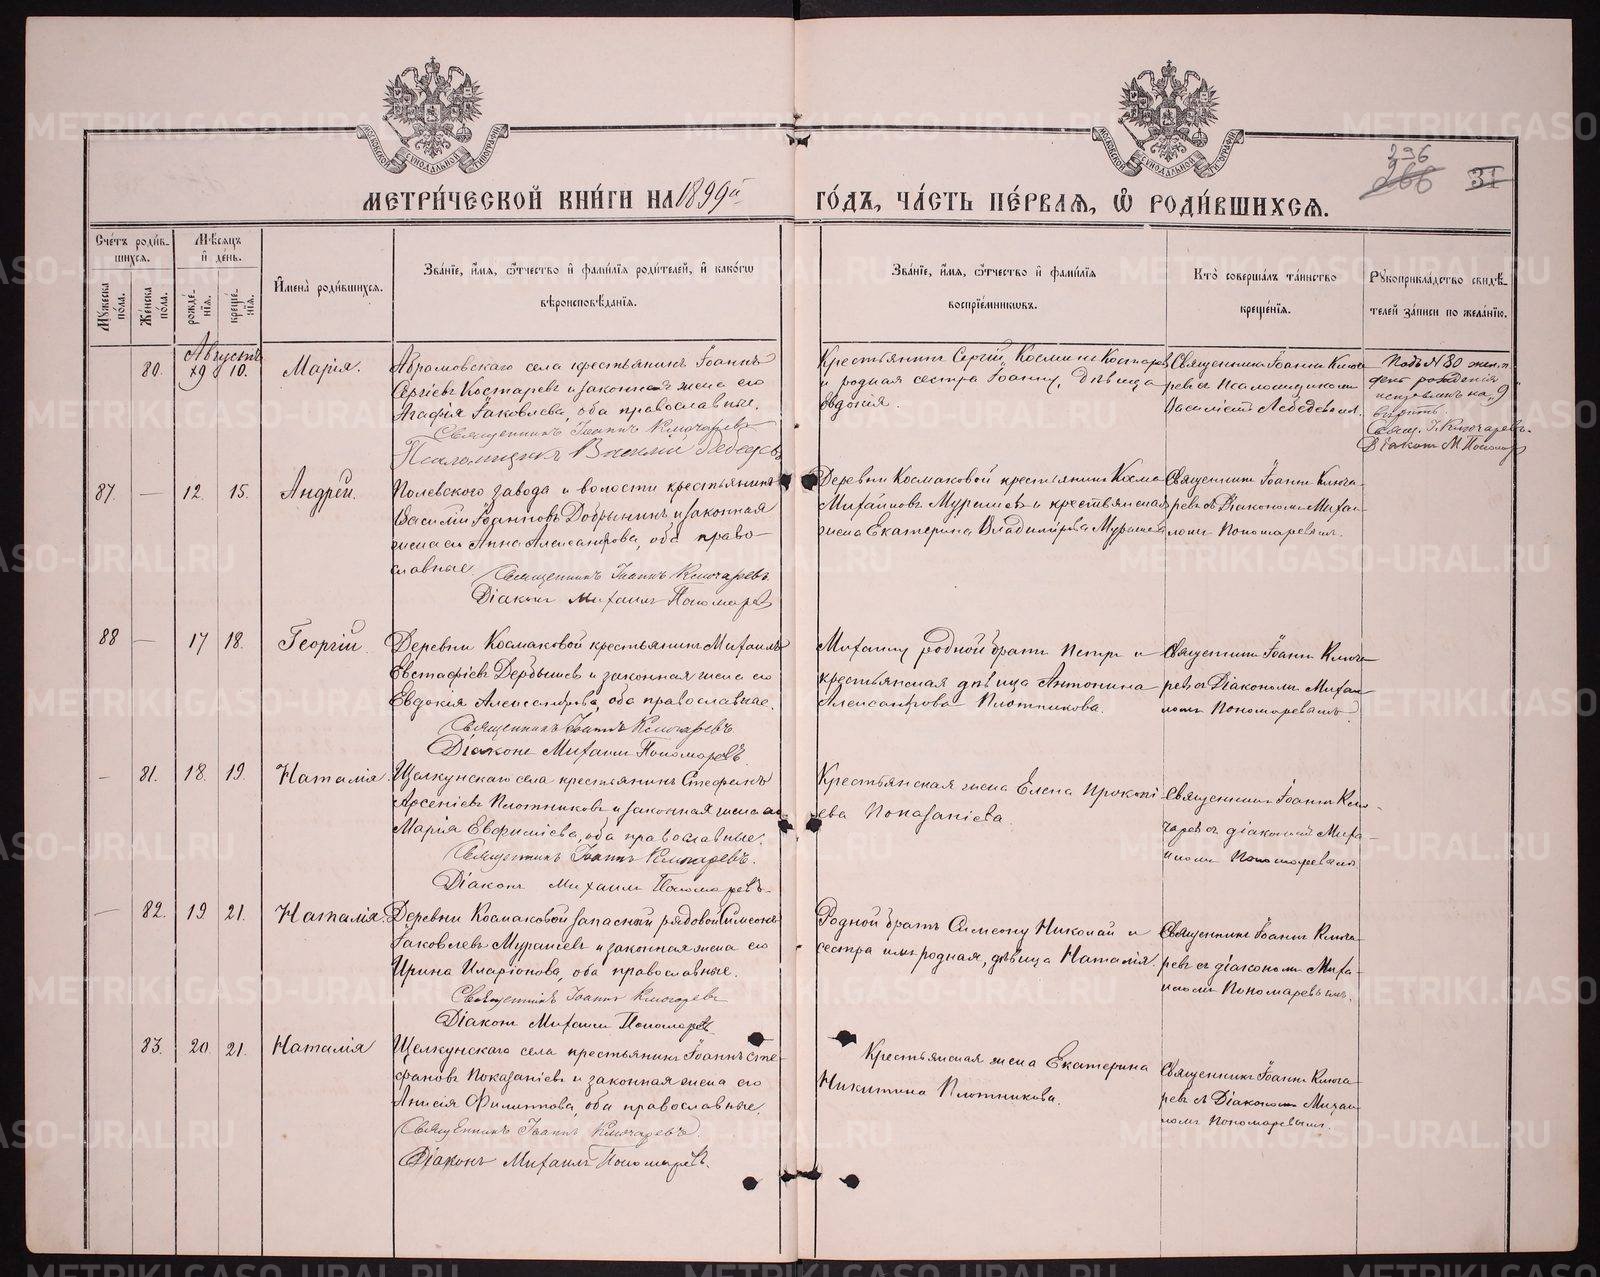 МЕТРИ́ЧЕСКОЙ КНИ́ГИ НА 1899й ГО́ДЪ, ЧА́СТЬ ПЕ́РВАЯ, Ѽ РОДИ́ВШИХСЯ.
296
266
31
Сче́тъ роди́в-
шихся.
Мѣ́сяцъ
и҆ де́нь.
И҆мена̀ роди́вшихся.
Зва́нїе, и҆́мя, ѻ҆́тчество и҆ фами́лїя роди́телей, и҆ како́гѡ
вѣроисповѣ́данїя.
Зва́нїе, и҆́мя, ѻ҆́тчество и҆ фами́лїя
воспрїе́мниковъ.
Кто̀ соверша́лъ та́инство
креще́нїя.
Рꙋкоприкла́дство свидѣ́-
телей за́писи по жела́нїю.
Мꙋ́жеска
по́ла.
Же́нска
по́ла.
рожде́-
нїя.
креще́-
нїя.
Августъ
80.
9
10.
Марія.
Абрамовскаго села крестьянинъ Іоаннъ
Сергіевъ Костаревъ и законная жена его
Агафія Іаковлева, оба православные.
Священникъ Іоаннъ Ключаревъ
Псаломщикъ Василій Лебедевъ
Крестьянинъ Сергій Косминъ Костаревъ
и родная сестра Іоанну, дѣвица
Евдокія.
Священникъ Іоаннъ Ключа
ревъ съ Псаломщикомъ
Василіемъ Лебедевымъ.
Подъ № 80 жен. п.
день рожденія
исправленъ на „9"
вѣрить.
Свящ. І. Ключаревъ.
Діаконъ М Пономар
87.
—
12.
15.
Андрей.
Полевского завода и волости крестьянинъ
Василій Іоанновъ Добрынинъ и законная
жена его Анна Александрова, оба право-
славные
Священникъ Іоаннъ Ключаревъ
Діаконъ Михаилъ Пономарев
Деревни Космаковой крестьянинъ Косма
Михаиловъ Мурашовъ и крестьянская
жена Екатерина Владимірова Мурашева
Священникъ Іоаннъ Ключа-
ревъ съ Діакономъ Михаи-
ломъ Пономаревымъ.
88
—
17
18.
Георгій.
Деревни Космаковой крестьянинъ Михаилъ
Евстафіевъ Дербышевъ и законная жена его
Евдокія Александрова, оба православные.
Священникъ Іоаннъ Ключаревъ
Діаконъ Михаилъ Пономаревъ.
Михаилу родной братъ Петръ и
крестьянская дѣвица Антонина
Александрова Плотникова.
Священникъ Іоаннъ Ключа-
ревъ съ Діакономъ Михаи-
ломъ Пономаревымъ.
—
81.
18.
19.
Наталія.
Щелкунскаго села крестьянинъ Стефанъ
Арсеніевъ Плотниковъ и законная жена его
Марія Евфиміева, оба православные.
Священникъ Іоаннъ Ключаревъ.
Діаконъ Михаилъ Пономаревъ.
Крестьянская жена Елена Прокопі
ева Показаніева.
Священникъ Іоаннъ Клю-
чаревъ съ діакономъ Миха-
иломъ Пономаревымъ
—
82.
19
21.
Наталія.
Деревни Космаковой запасный рядовой Симеонъ
Іаковлевъ Мурашевъ и законная жена его
Ирина Иларіонова, оба православные.
Священникъ Іоаннъ Ключаревъ
Діаконъ Михаилъ Пономаревъ
Родной братъ Симеону Николай и
сестра имъ родная, дѣвица Наталія.
Священникъ Іоаннъ Ключа-
ревъ съ діакономъ Миха-
иломъ Пономаревымъ.
83.
20
21.
Наталія
Щелкунскаго села крестьянинъ Іоаннъ Сте-
фановъ Показаніевъ и законная жена его
Анисія Филиппова, оба православные.
Священникъ Іоаннъ Ключаревъ.
Діаконъ Михаилъ Пономаревъ.
Крестьянская жена Екатерина
Никитина Плотникова.
Священникъ Іоаннъ Ключа-
ревъ съ Діакономъ Михаи-
ломъ Пономаревымъ.
METRIKI.GASO-URAL.RU